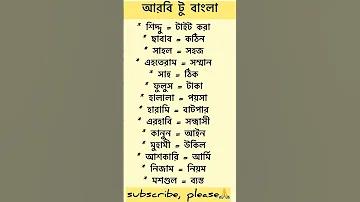 আরবি টু বাংলা
* শিদ্দু = টাইট করা
* ছাবাব = কঠিন
* সাহল = সহজ
* এহতেরাম = সম্মান
* সাহ = ঠিক
* ফুলুস = টাকা
* হালালা = পয়সা
* হারামি = বাটপার
* এরহাবি = সন্ত্রাসী
* কানুন = আইন
* মুহামী = উকিল
* আশকারি = আর্মি
* নিজাম = নিয়ম
* মশগুল = ব্যস্ত
subscribe, please🙏